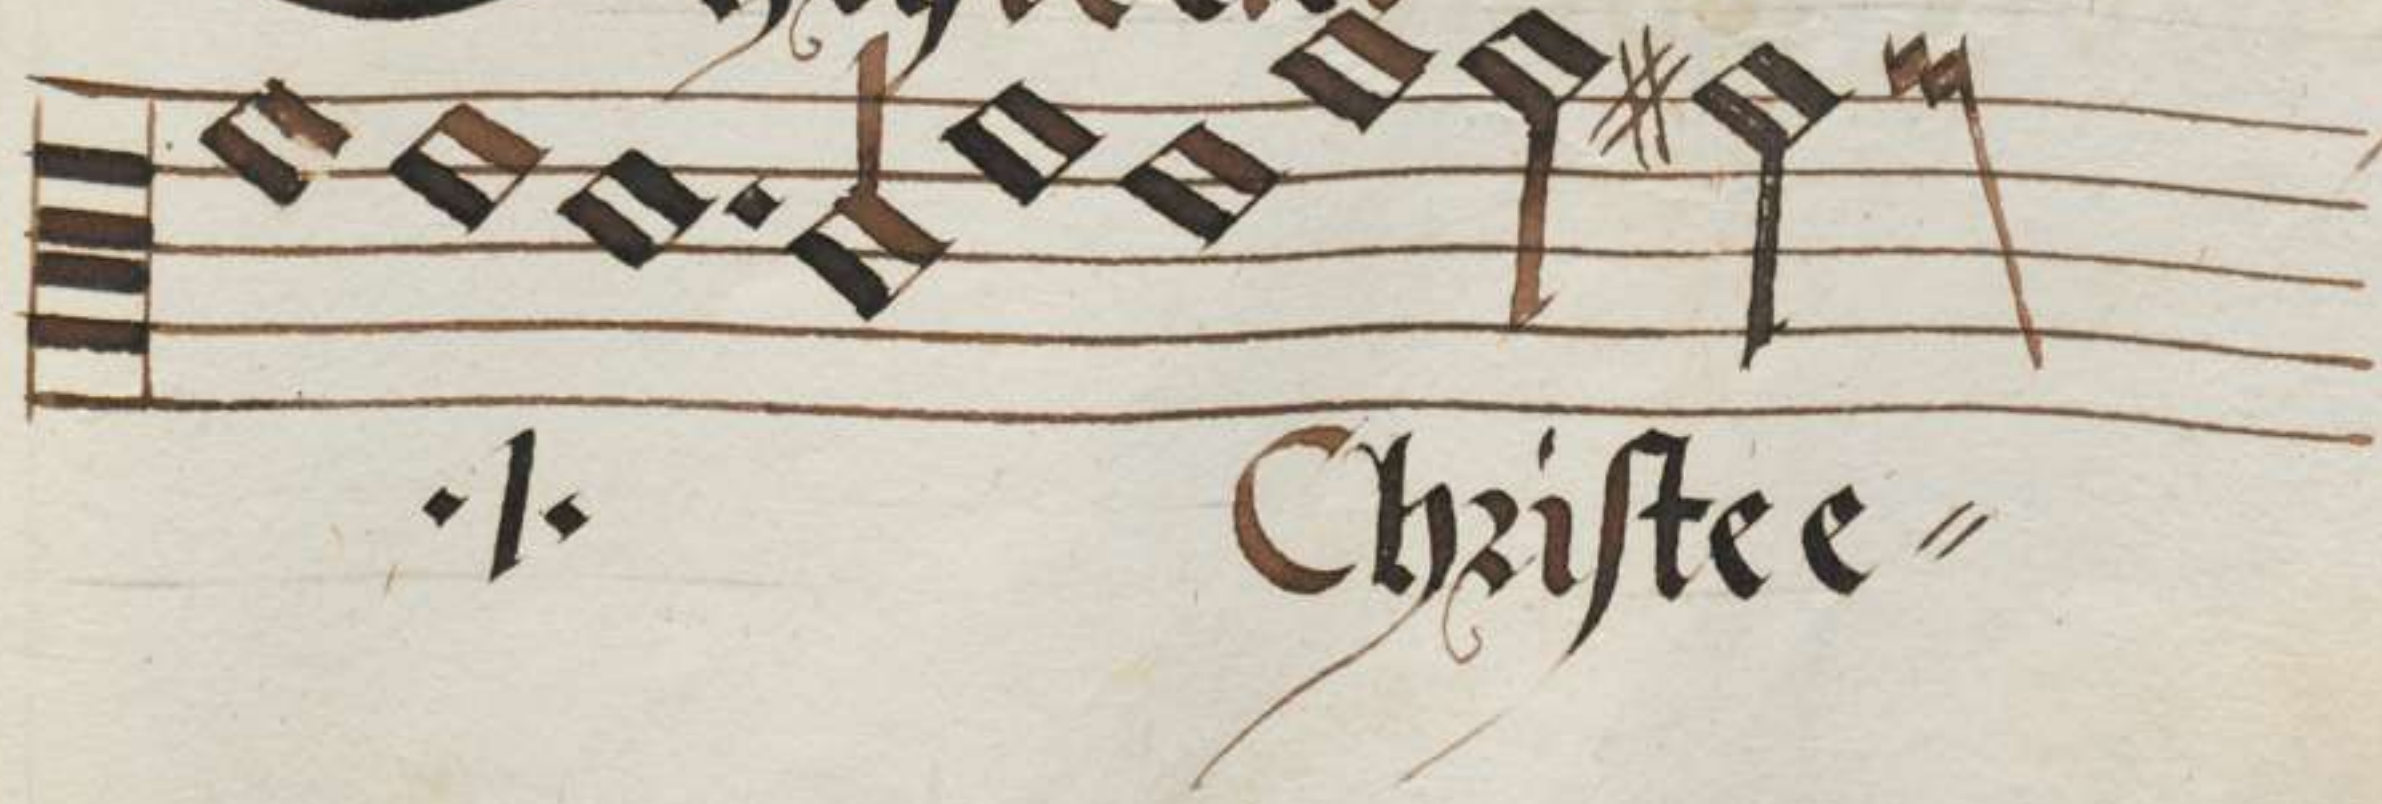 ·/·
Christe e〃